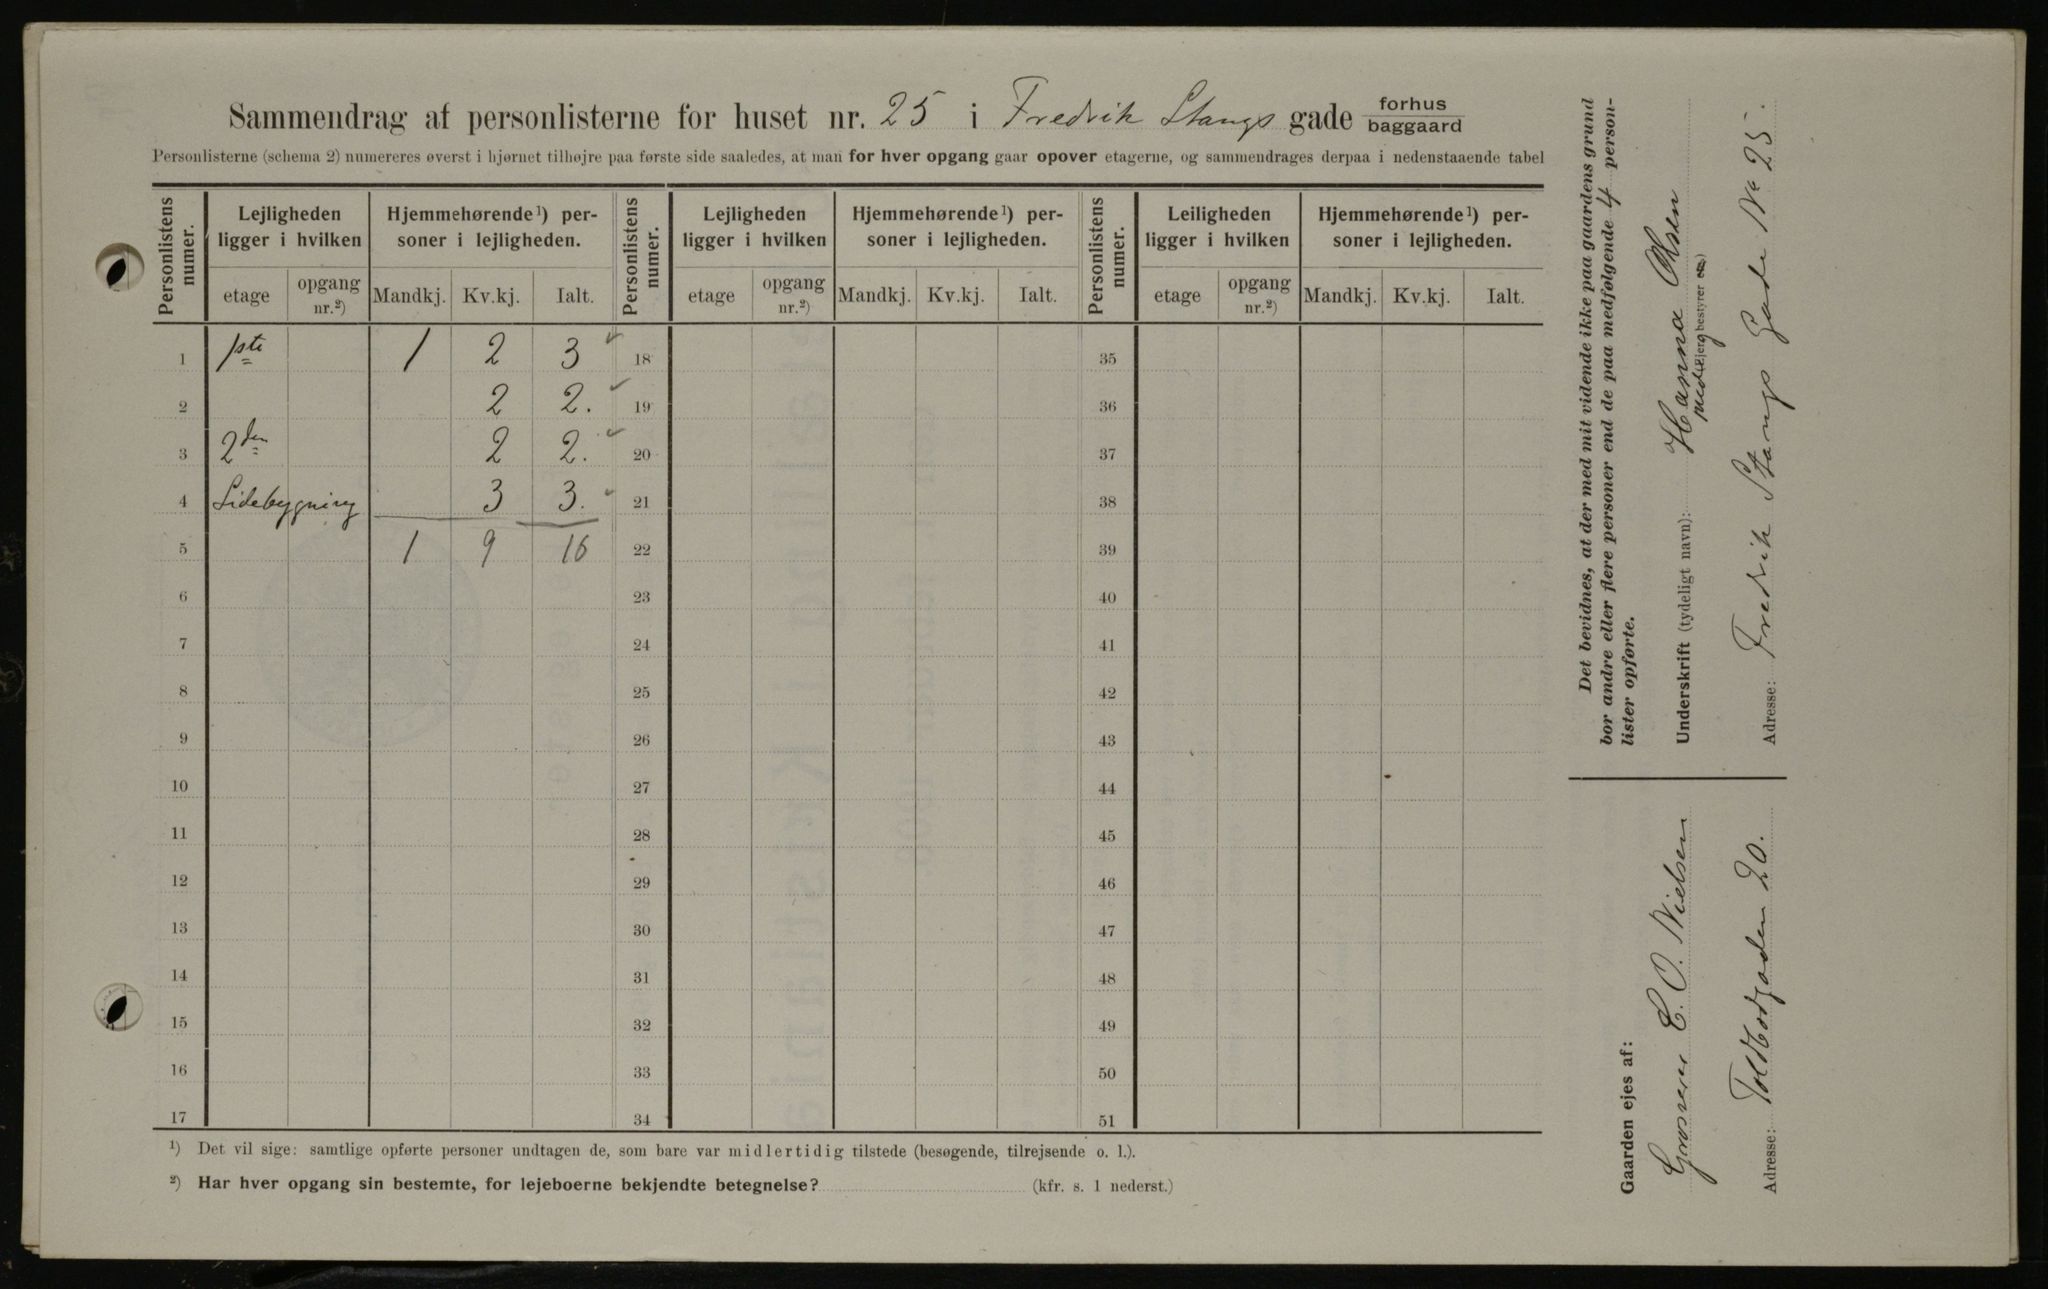 Sammendrag af personlisterne for huset nr. 25 i Fredrik Stangs gade forhus
baggaard
Personlisterne (schema 2) numereres øverst i hjørnet tilhøjre paa første side saaledes, at man for hver opgang gaar opover etagerne, og sammendrages derpaa i nedenstaaende tabel
Personlistens numer. Lejligheden ligger i hvilken Hjemmehørende¹) personer i lejligheden. Personlistens numer. Lejligheden ligger i hvilken Hjemmehørende¹) personer i lejligheden. Personlistens numer. Leiligheden ligger i hvilken Hjemmehørende¹) personer i lejligheden.
etage opgang nr.²) Mandkj. Kv.kj. Ialt. etage opgang nr.²) Mandkj. Kv.kj. Ialt. etage opgang nr.²) Mandkj. Kv.kj. Ialt.
1 1ste 1 2 3 ✓ 18 35
2 2 2. ✓ 19 36
3 2den 2 2. ✓ 20 37
4 Sidebygning 3 3. ✓ 21 38
5 1 9 10 22 39
6 23 40
7 24 41
8 25 42
9 26 43
10 27 44
11 28 45
12 29 46
13 30 47
14 31 48
15 32 49
16 33 50
17 34 51
¹) Det vil sige: samtlige opførte personer undtagen de, som bare var midlertidig tilstede (besøgende, tilrejsende o. l.).
²) Har hver opgang sin bestemte, for lejeboerne bekjendte betegnelse? (kfr. s. 1 nederst.)
Det bevidnes, at der med mit vidende ikke paa gaardens grund
bor andre eller flere personer end de paa medfølgende 4 person-
lister opførte.
Underskrift (tydeligt navn): Hanna Olsen
bestyrer
Adresse: Fredrik Stangs Gade No 25.
Gaarden ejes af:
Grosserer C. O. Nielsen
Adresse: Toldbodgaden 20.